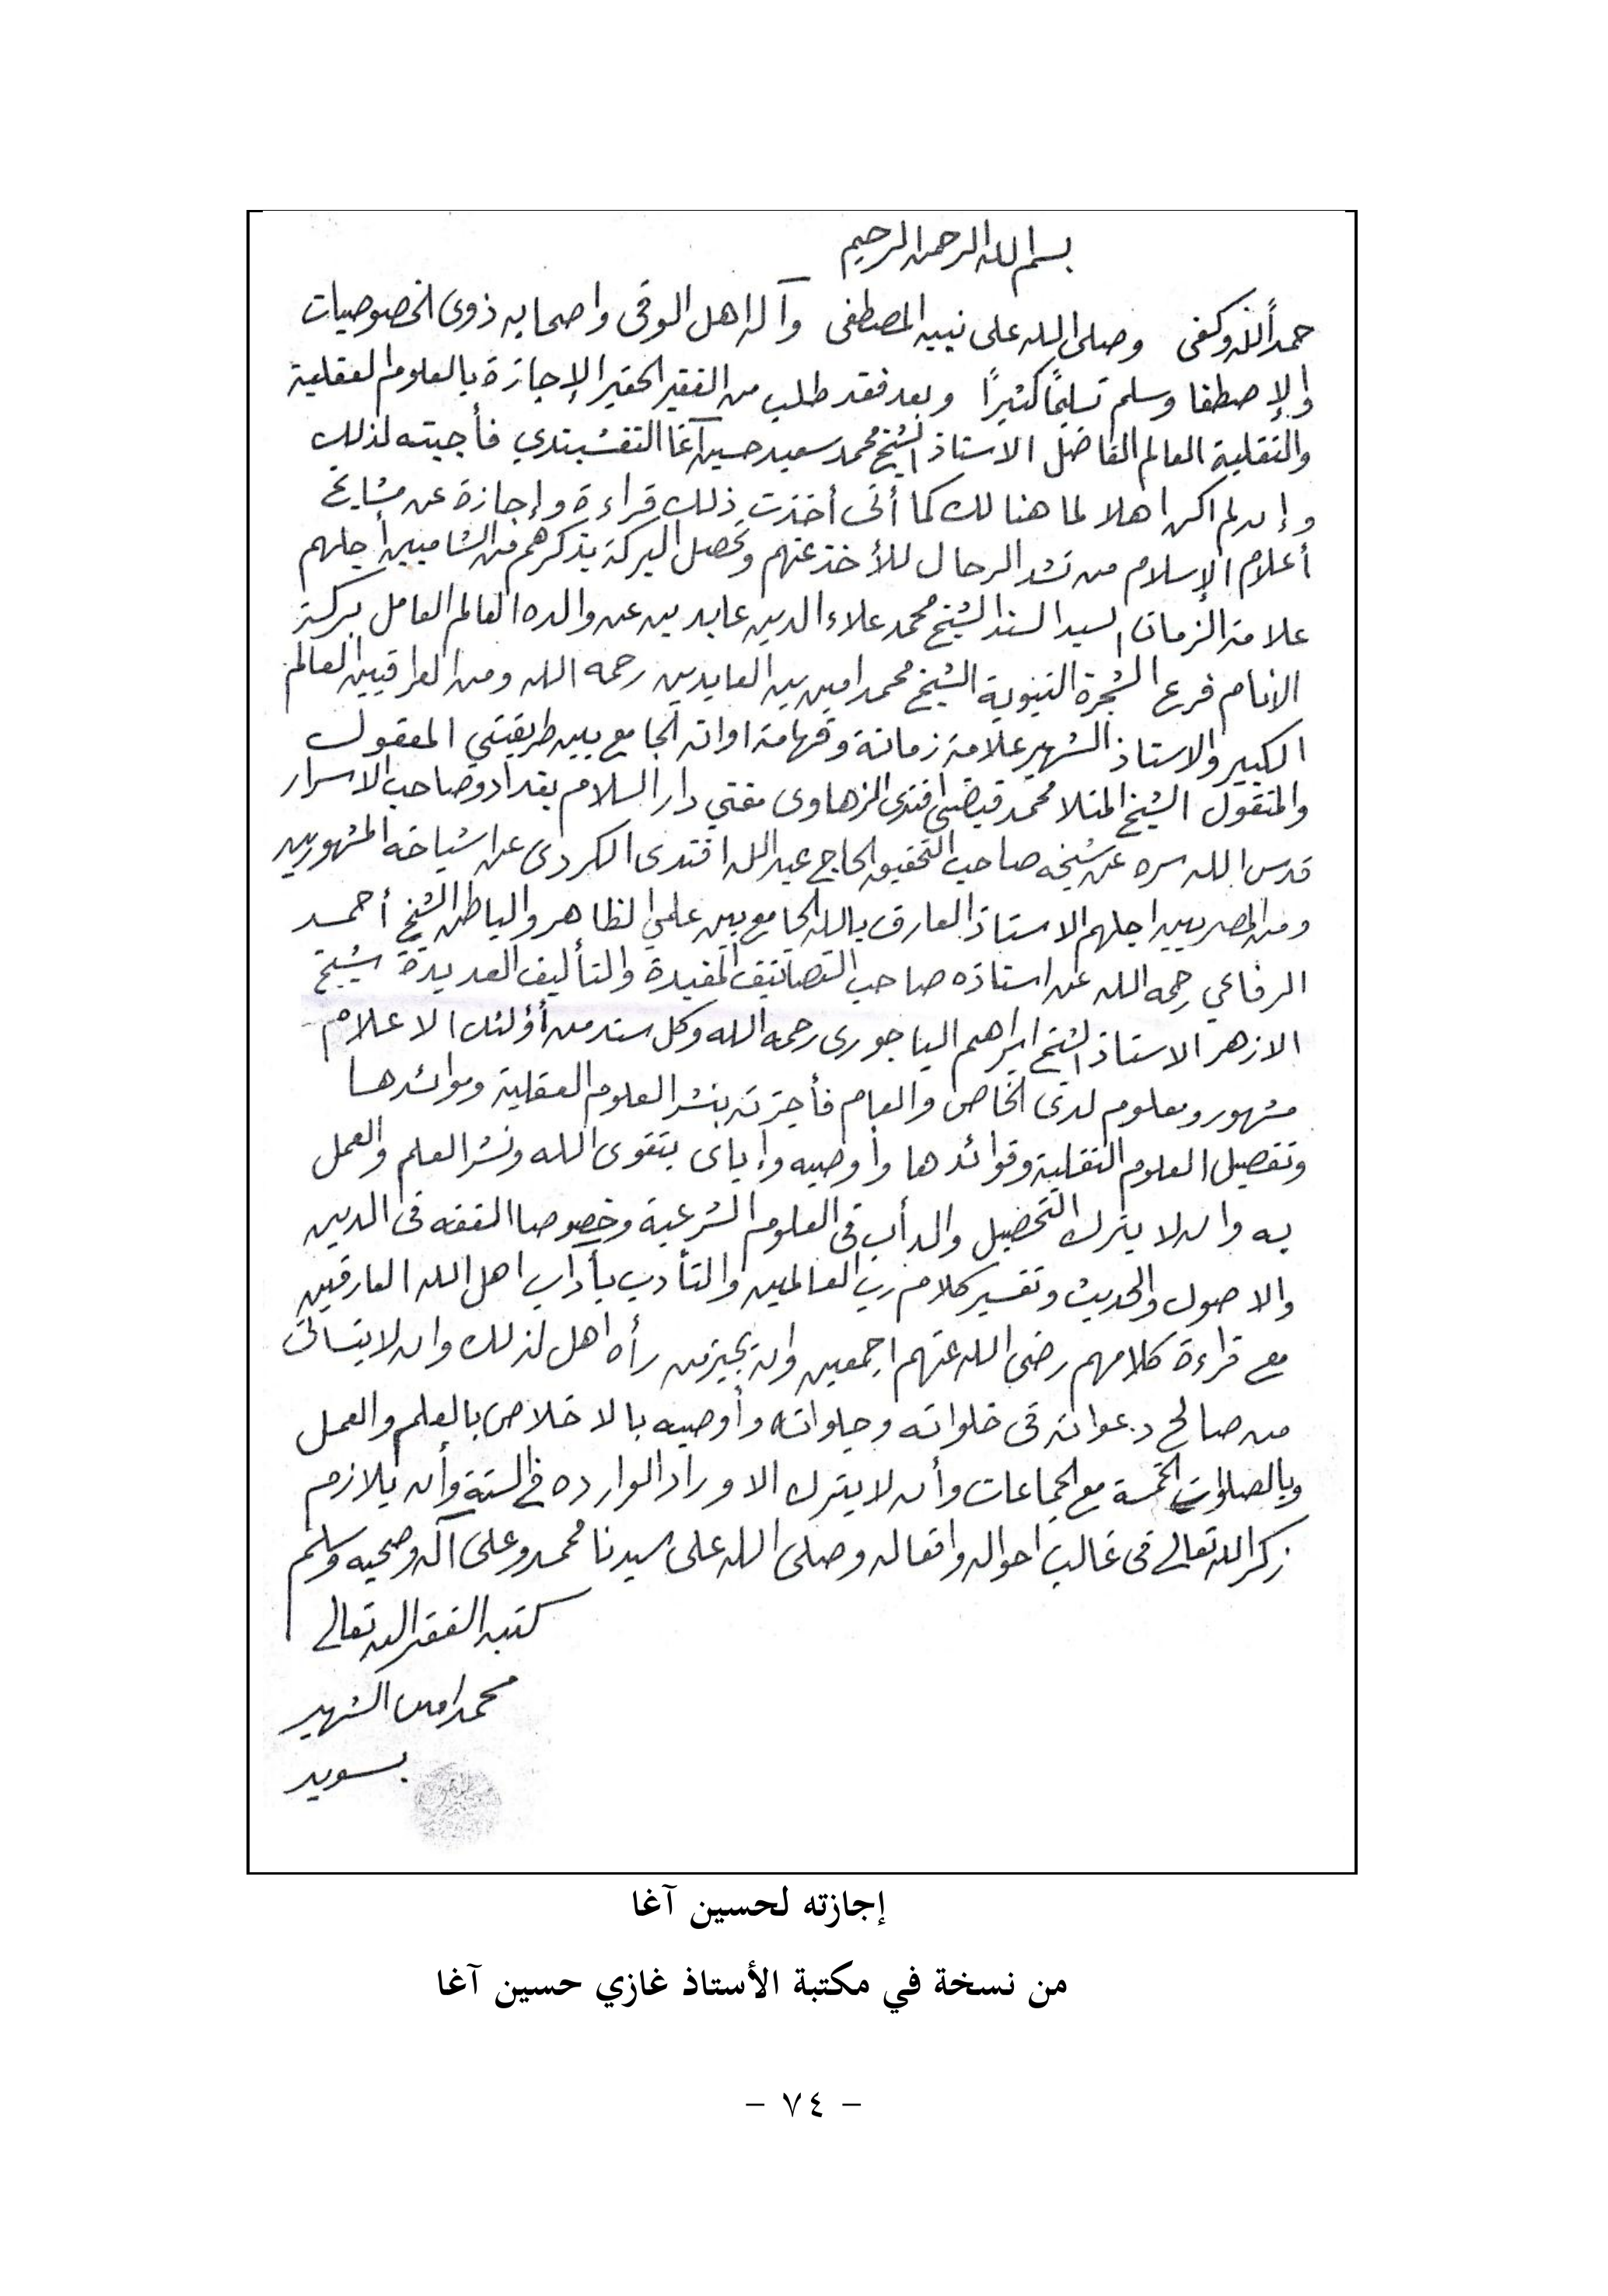 بسم الله الرحمن الرحيم
حمداً لله وكفى وصلى الله على نبيه المصطفى وآله اهل الوفى واصحابه ذوى الخصوصيات
والإصطفا وسلم تسليمًا كثيرًا وبعد فقد طلب من الفقير الحقير الإجازة بالعلوم العقلية
والنقلية العالم الفاضل الاستاذ الشيخ محمد سعيد حسين آغا النقشبندي فأجبته لذلك
وإن لم اكن اهلا لما هنالك كما أنى أخذت ذلك قراءة وإجازة عن مشايخ
أعلام الإسلام من تشد الرحال للأخذ عنهم وتحصل البركة بذكرهم فمن الشاميين أجلهم
علامة الزمان السيد السند الشيخ محمد علاء الدين عابدين عن والده العالم العامل بركة
الانام فرع الشجرة النبوية الشيخ محمد امين بن العابدين رحمه الله ومن العراقيين العالم
الكبير والاستاذ الشهير علامة زمانة وفهامة اوانه الجامع بين طريقتي المعقول
والمنقول الشيخ المنلا محمد فيضى افندى الزهاوى مفتي دار السلام بغداد وصاحب الاسرار
قدس الله سره عن شيخه صاحب التحقيق الحاج عبد الله افندى الكردى عن اشياخه المشهورين
ومن المصريين اجلهم الاستاذ العارف بالله الجامع بين علمي الظاهر والباطن الشيخ أحمد
الرفاعي رحمه الله عن استاذه صاحب التصانيف المفيدة والتأليف العديدة شيخ
الازهر الاستاذ الشيخ ابراهيم الباجورى رحمه الله وكل سند من أؤلئك الاعلام
مشهور ومعلوم لدى الخاص والعام فأجزته بنشر العلوم العقلية وموائدها
وتفصيل العلوم النقلية وفوائدها وأوصيه وإياى بتقوى الله ونشر العلم والعمل
به وان لا يترك التحصيل والدأب فى العلوم الشرعية وخصوصا الفقه فى الدين
والاصول والحديث وتفسير كلام رب العالمين والتأدب بآداب اهل الله العارفين
مع قراءة كلامهم رضى الله عنهم اجمعين وان يجيز من رأه اهل لذلك وان لا ينسانى
من صالح دعواته فى خلواته وجلواته وأوصيه بالاخلاص بالعلم والعمل
وبالصلوات الخمسة مع الجماعات وأن لا يترك الاوراد الوارده في السنة وأن يلازم
ذكر الله تعالى فى غالب احواله وافعاله وصلى الله على سيدنا محمد وعلى آله وصحبه وسلم
كتبه الفقير اليه تعالى
محمد امين الشهير
بسويد
إجازته لحسين آغا
من نسخة في مكتبة الأستاذ غازي حسين آغا
– ٧٤ –